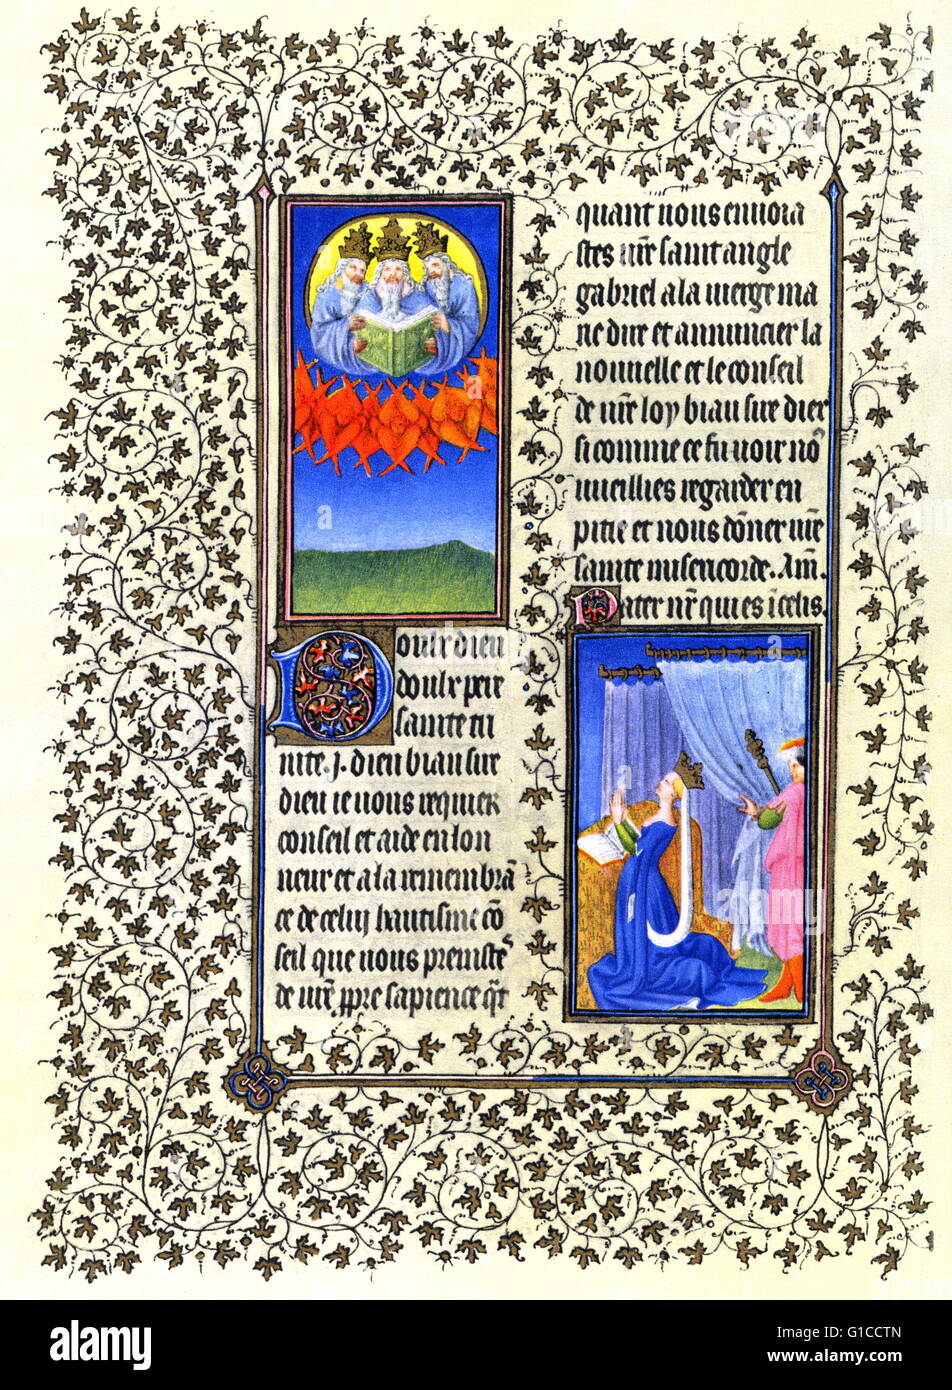 Doulx dieu
doulx pere
sainte tri
nite. j. dieu biau sire
dieu ie vous requier
conseil et aide en lon
neur et a la remembrā
ce de celuy hautisme cō
seil que vous preniste⁹
de vr̄e ꝓpre sapience
quant vous enuoia
stes vr̄e saint angle
gabriel a la vierge ma
rie dire et annuncier la
nouuelle et le conseil
de nr̄e loy biau sire
si comme ce fu voir vo⁹
vueillies regarder en
pitie et nous dōner vr̄e
sainte misericorde. Am̄.
Pater nr̄ qui es i celis.
alamy
Image ID: G1CCTN
www.alamy.com